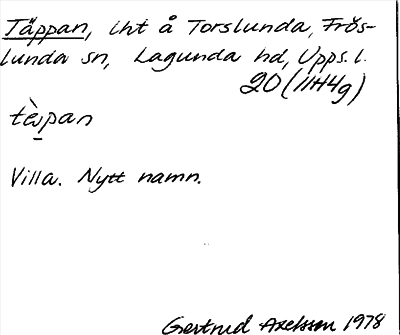 Täppan, lht å Torslunda, Frös-
lunda sn, Lagunda hd, Upps. l.
20 (11H4g)
tèpan
Villa. Nytt namn.
Gertrud Axelsson 1978